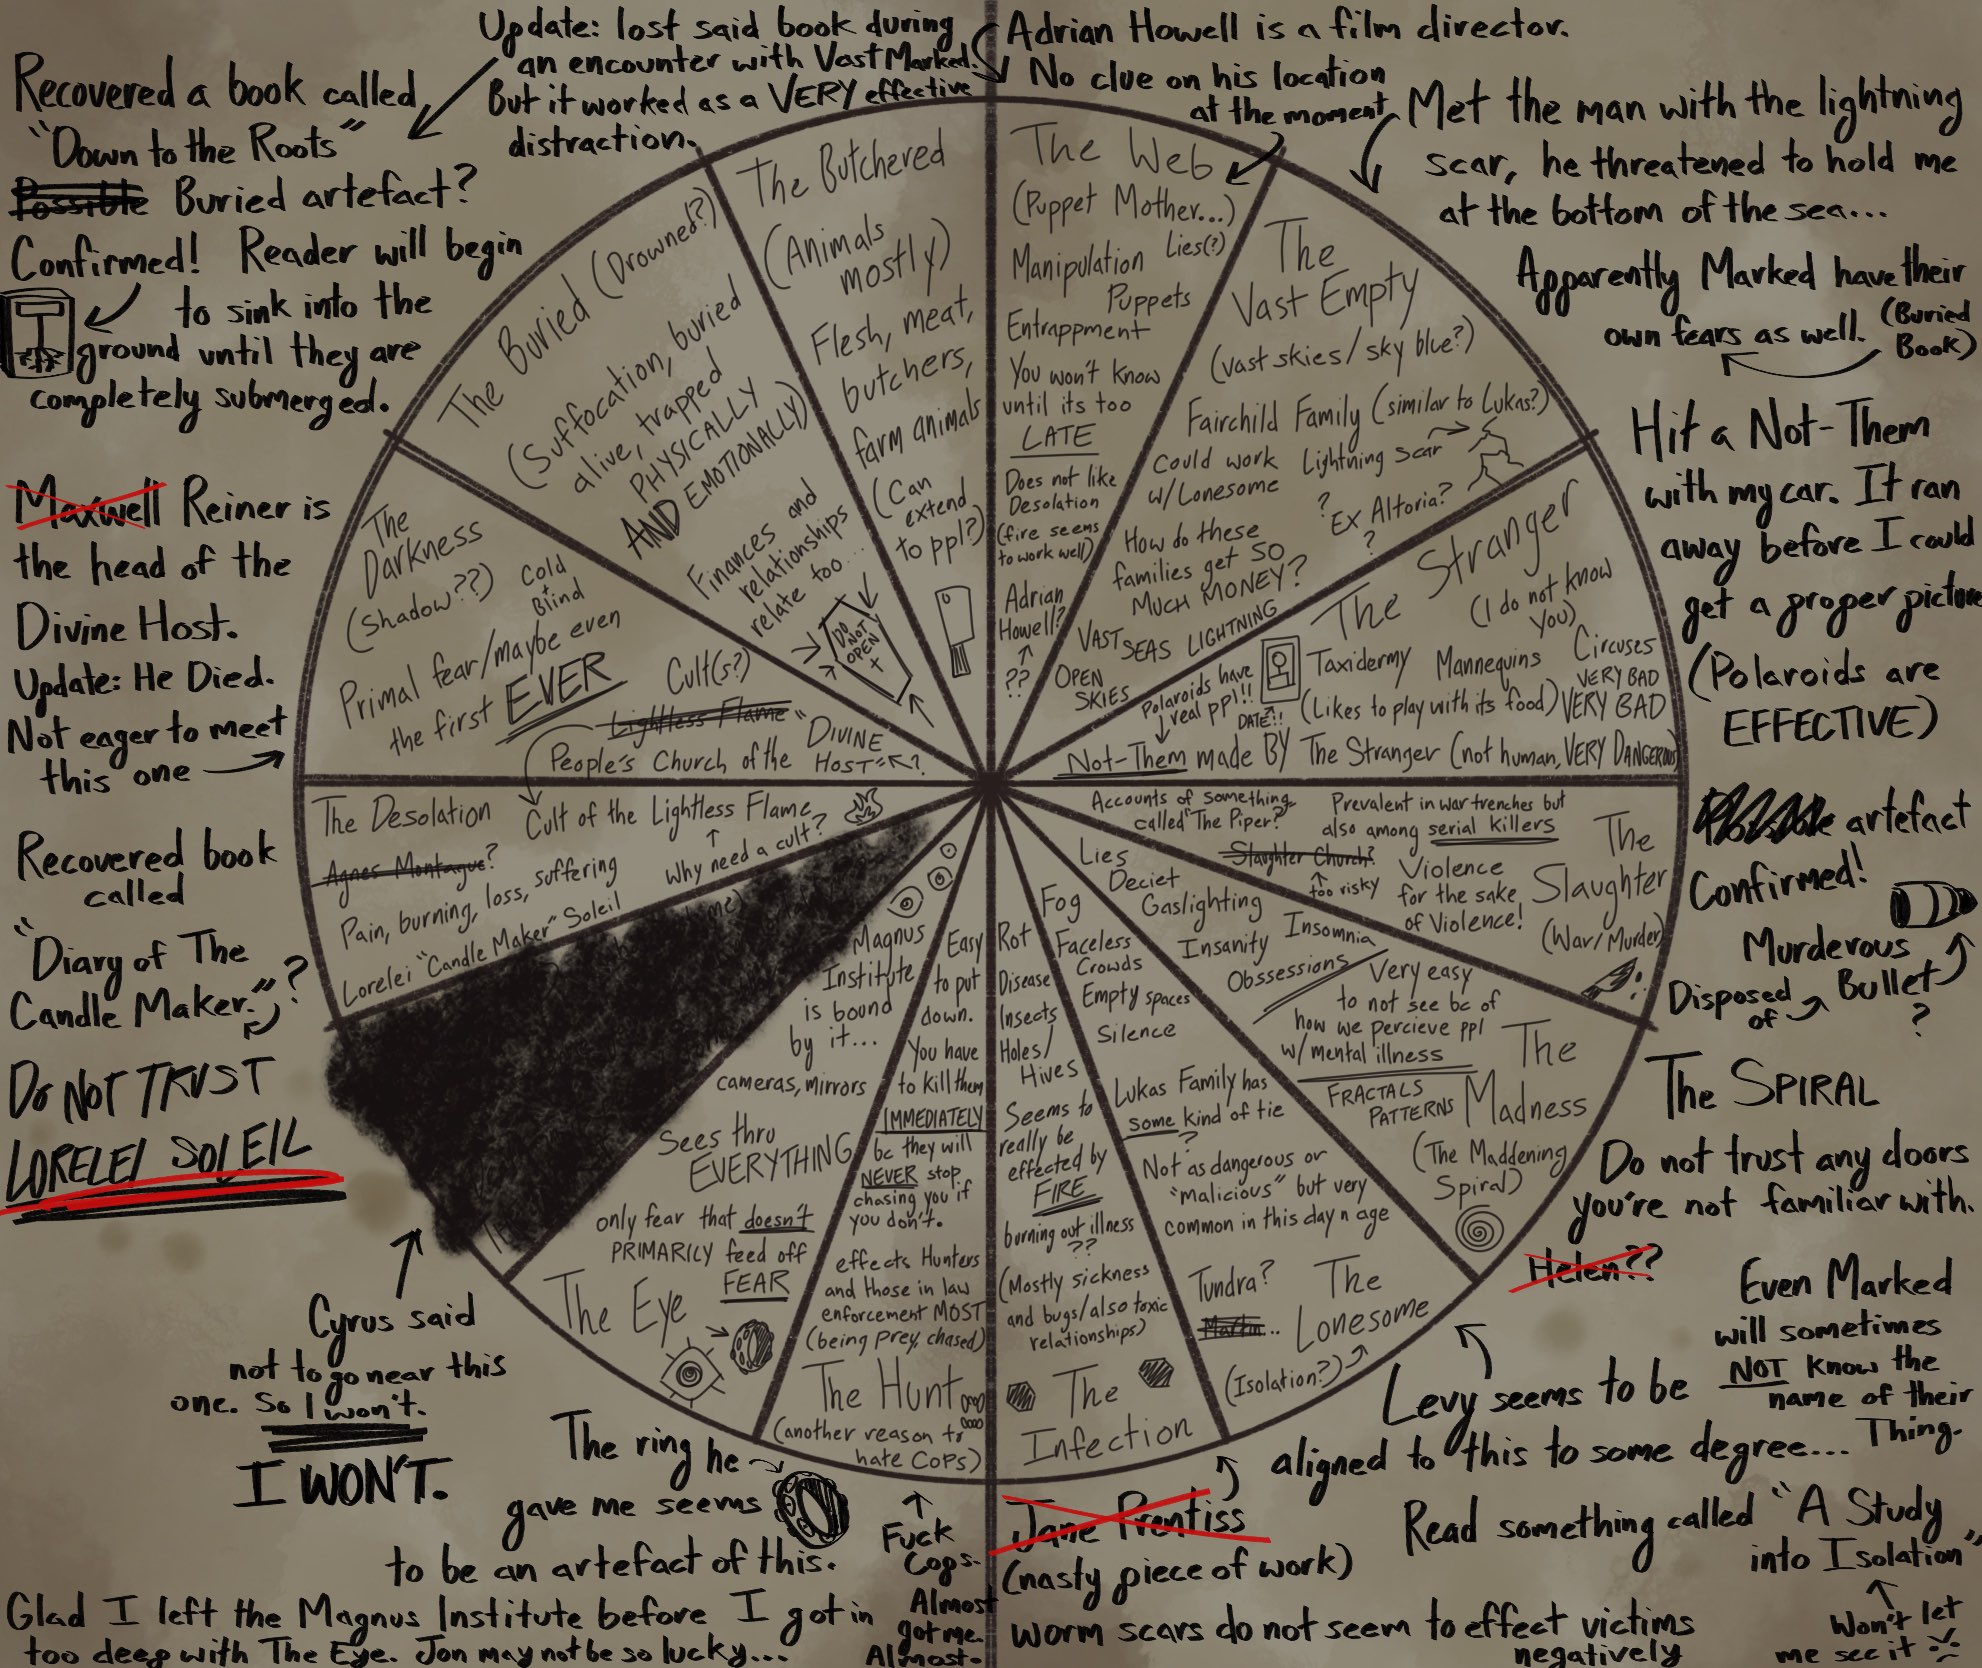 Update: lost said book during
an encounter with Vast Marked.
But it worked as a VERY effective
distraction.
Adrian Howell is a film director.
No clue on his location
at the moment
Recovered a book called
"Down to the Roots"
Possible Buried artefact?
Confirmed! Reader will begin
to sink into the
ground until they are
completely submerged.
Met the man with the lightning
scar, he threatened to hold me
at the bottom of the sea...
Apparently Marked have their
own fears as well.
(Buried
Book)
Maxwell Reiner is
the head of the
Divine Host.
Update: He Died.
Not eager to meet
this one
Hit a Not-Them
with my car. It ran
away before I could
get a proper picture
(Polaroids are
EFFECTIVE)
Recovered book
called
"Diary of The
Candle Maker."?
DO NOT TRUST
LORELEI SOLEIL
artefact
Confirmed!
Murderous
Bullet
?
Disposed
of
The Butchered
(Animals
mostly)
Flesh, meat,
butchers,
farm animals
(Can
extend
to ppl?)
The Web
(Puppet Mother...)
Manipulation Lies(?)
Puppets
Entrappment
You won't know
until its too
LATE
Does not like
Desolation
(fire seems
to work well)
Adrian
Howell?
??
The
Vast Empty
(vast skies/sky blue?)
Fairchild Family (similar to Lukas?)
Could work
w/Lonesome
Lightning scar
?
Ex Altoria?
?
How do these
families get so
MUCH MONEY?
VAST
SEAS
LIGHTNING
OPEN
SKIES
The Stranger
(I do not know
you)
Polaroids have
real ppl!!
DATE!!
Taxidermy Mannequins
Circuses
VERY BAD
VERY BAD
(Likes to play with its food)
Not-Them made BY The Stranger (not human, VERY DANGEROUS)
The Buried (Drowned?)
(Suffocation, buried
alive, trapped
PHYSICALLY
AND EMOTIONALLY)
Finances and
relationships
relate too...
DO
NOT
OPEN
The
Darkness
(Shadow??)
Cold
+
Blind
Primal fear/maybe even
the first EVER
Cult(s?)
Lightless Flame
People's Church of the "DIVINE
HOST"?
The Desolation
Cult of the Lightless Flame
Why need a cult?
Agnes Montague?
Pain, burning, loss, suffering
Lorelei "Candle Maker" Soleil
Accounts of something
called "The Piper?"
Slaughter Church?
too risky
Prevalent in war trenches but
also among serial killers
Violence
for the sake
of Violence!
The
Slaughter
(War/Murder)
Lies
Deciet
Gaslighting
Insanity
Insomnia
Obssessions
Very easy
to not see bc of
how we percieve ppl
w/mental illness
FRACTALS
PATTERNS
The
Madness
(The Maddening
Spiral)
Fog
Faceless
Crowds
Empty spaces
Silence
Lukas Family has
some kind of tie
?
Not as dangerous or
"malicious" but very
common in this day n age
Tundra?
Martin...
The
Lonesome
(Isolation?)
Rot
Disease
Insects
Holes/
Hives
Seems to
really be
effected by
FIRE
burning out illness
??
(Mostly sickness
and bugs/also toxic
relationships)
The
Infection
Easy
to put
down.
You have
to kill them
IMMEDIATELY
bc they will
NEVER stop
chasing you if
you don't.
effects Hunters
and those in law
enforcement MOST
(being prey, chased)
The Hunt
(another reason to
hate COPS)
Magnus
Institute
is bound
by it...
cameras, mirrors
Sees thru
EVERYTHING
only fear that doesn't
PRIMARILY feed off
FEAR
The Eye
The SPIRAL
Do not trust any doors
you're not familiar with.
Helen??
Even Marked
will sometimes
NOT know the
name of their
Thing.
Cyrus said
not to go near this
one. So I won't.
I WON'T.
The ring he
gave me seems
to be an artefact of this.
Fuck
Cops.
Almost
got me.
Almost.
Glad I left the Magnus Institute before I got in
too deep with The Eye. Jon may not be so lucky...
Jane Prentiss
(nasty piece of work)
worm scars do not seem to effect victims
negatively
Levy seems to be
aligned to this to some degree...
Read something called "A Study
into Isolation"
Won't let
me see it